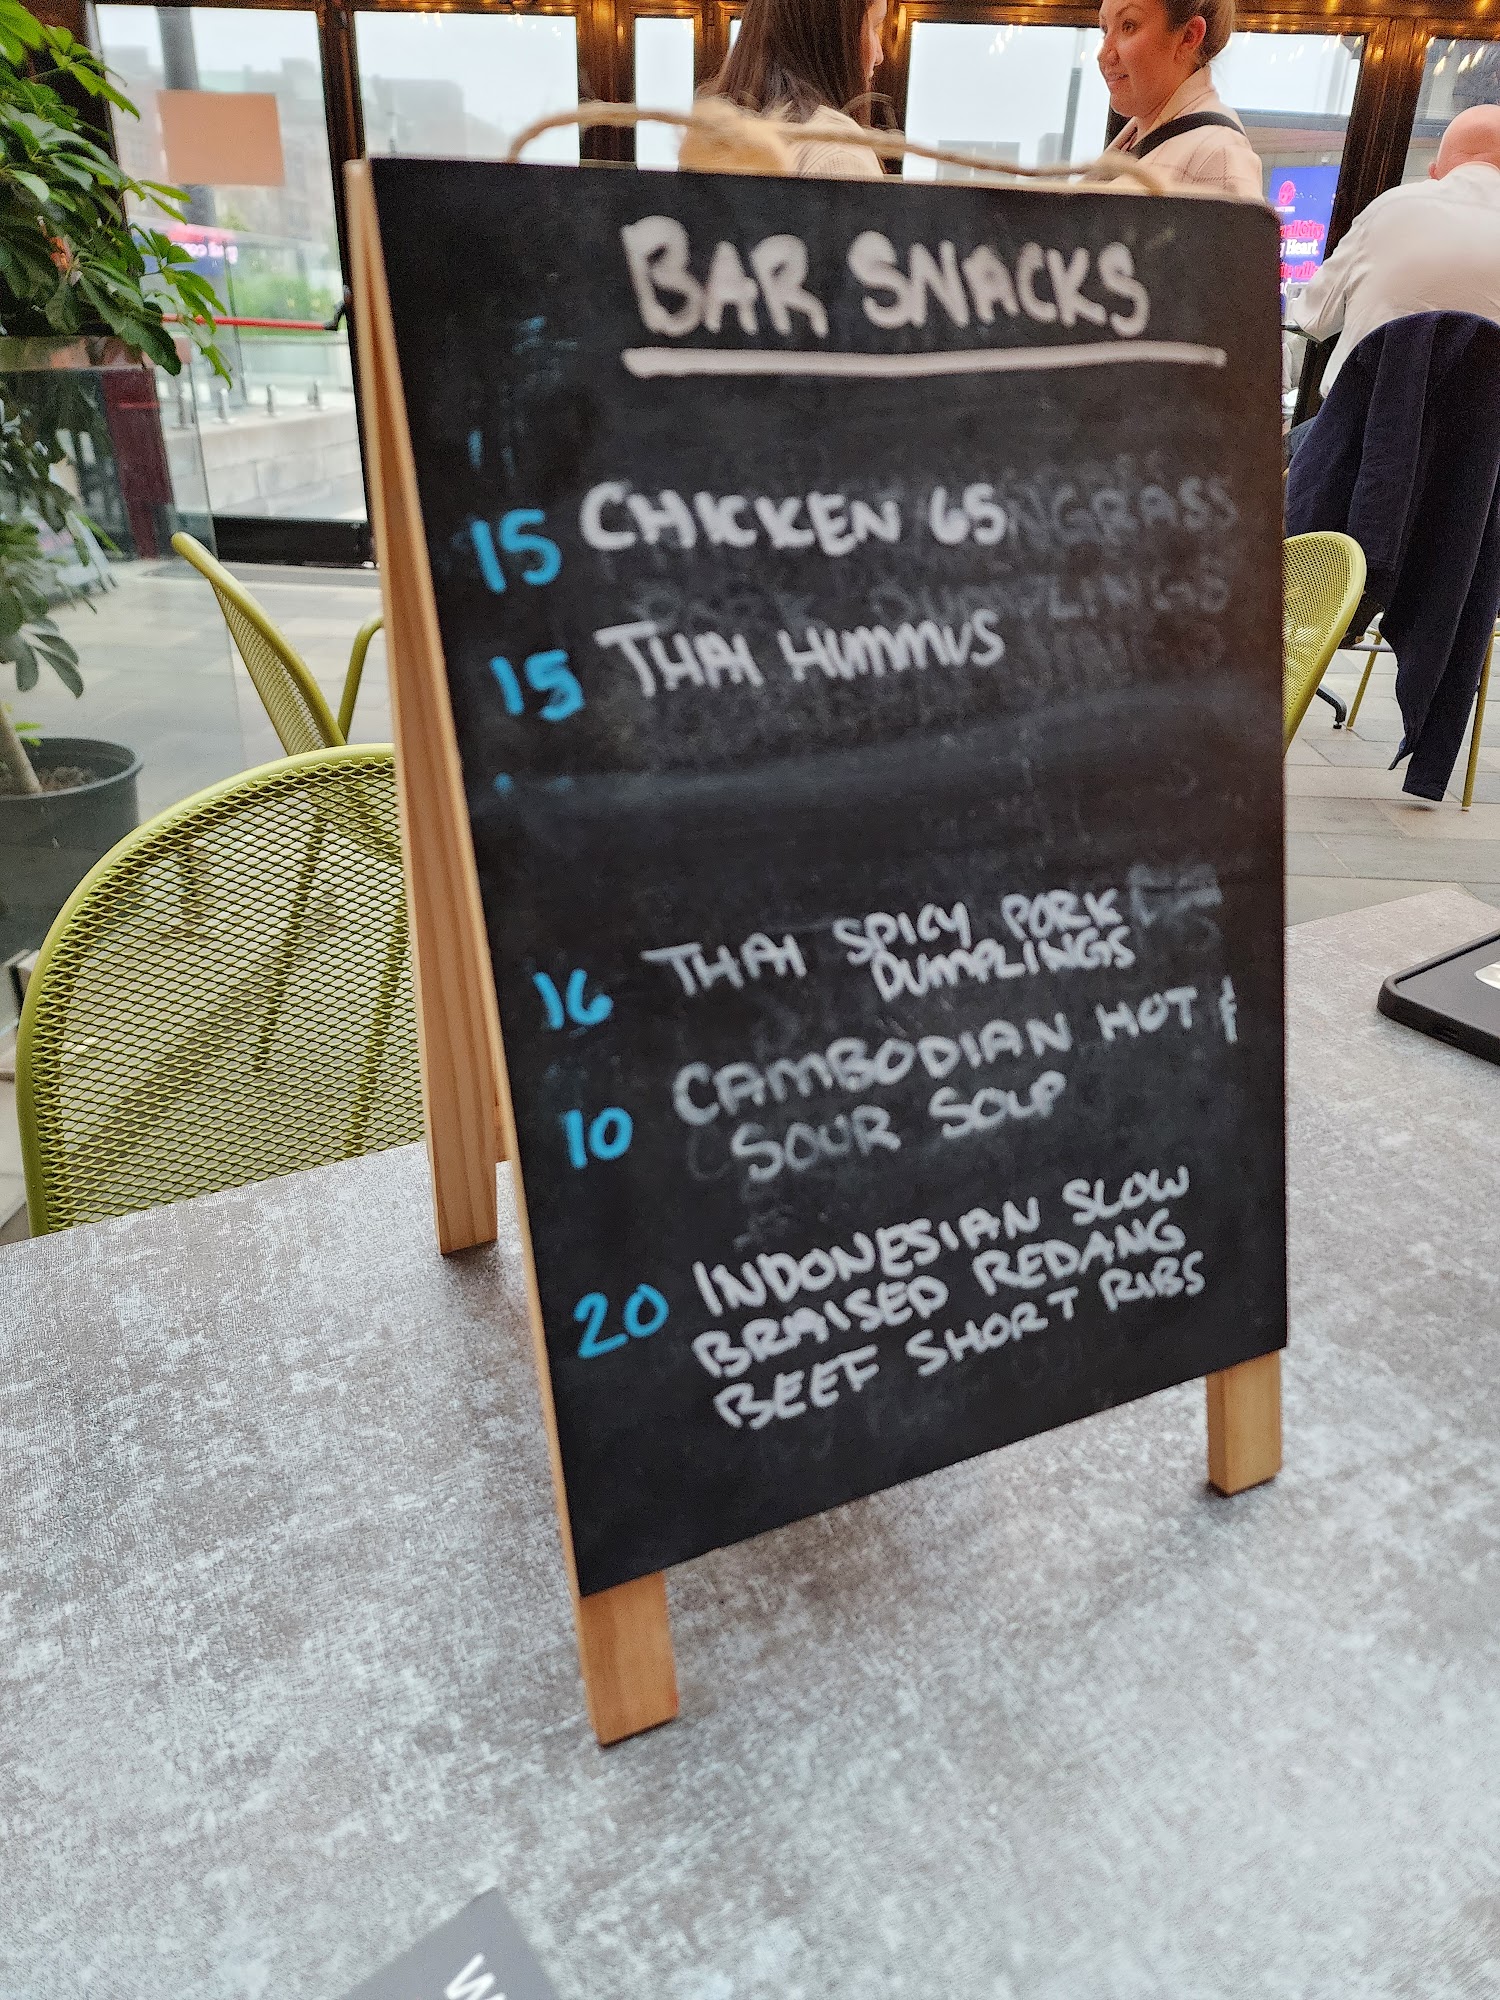 BAR SNACKS
15 CHICKEN 65
15 THAI HUMMUS
16 THAI SPICY PORK
DUMPLINGS
10 CAMBODIAN HOT &
SOUR SOUP
20 INDONESIAN SLOW
BRAISED REDANG
BEEF SHORT RIBS
Heart